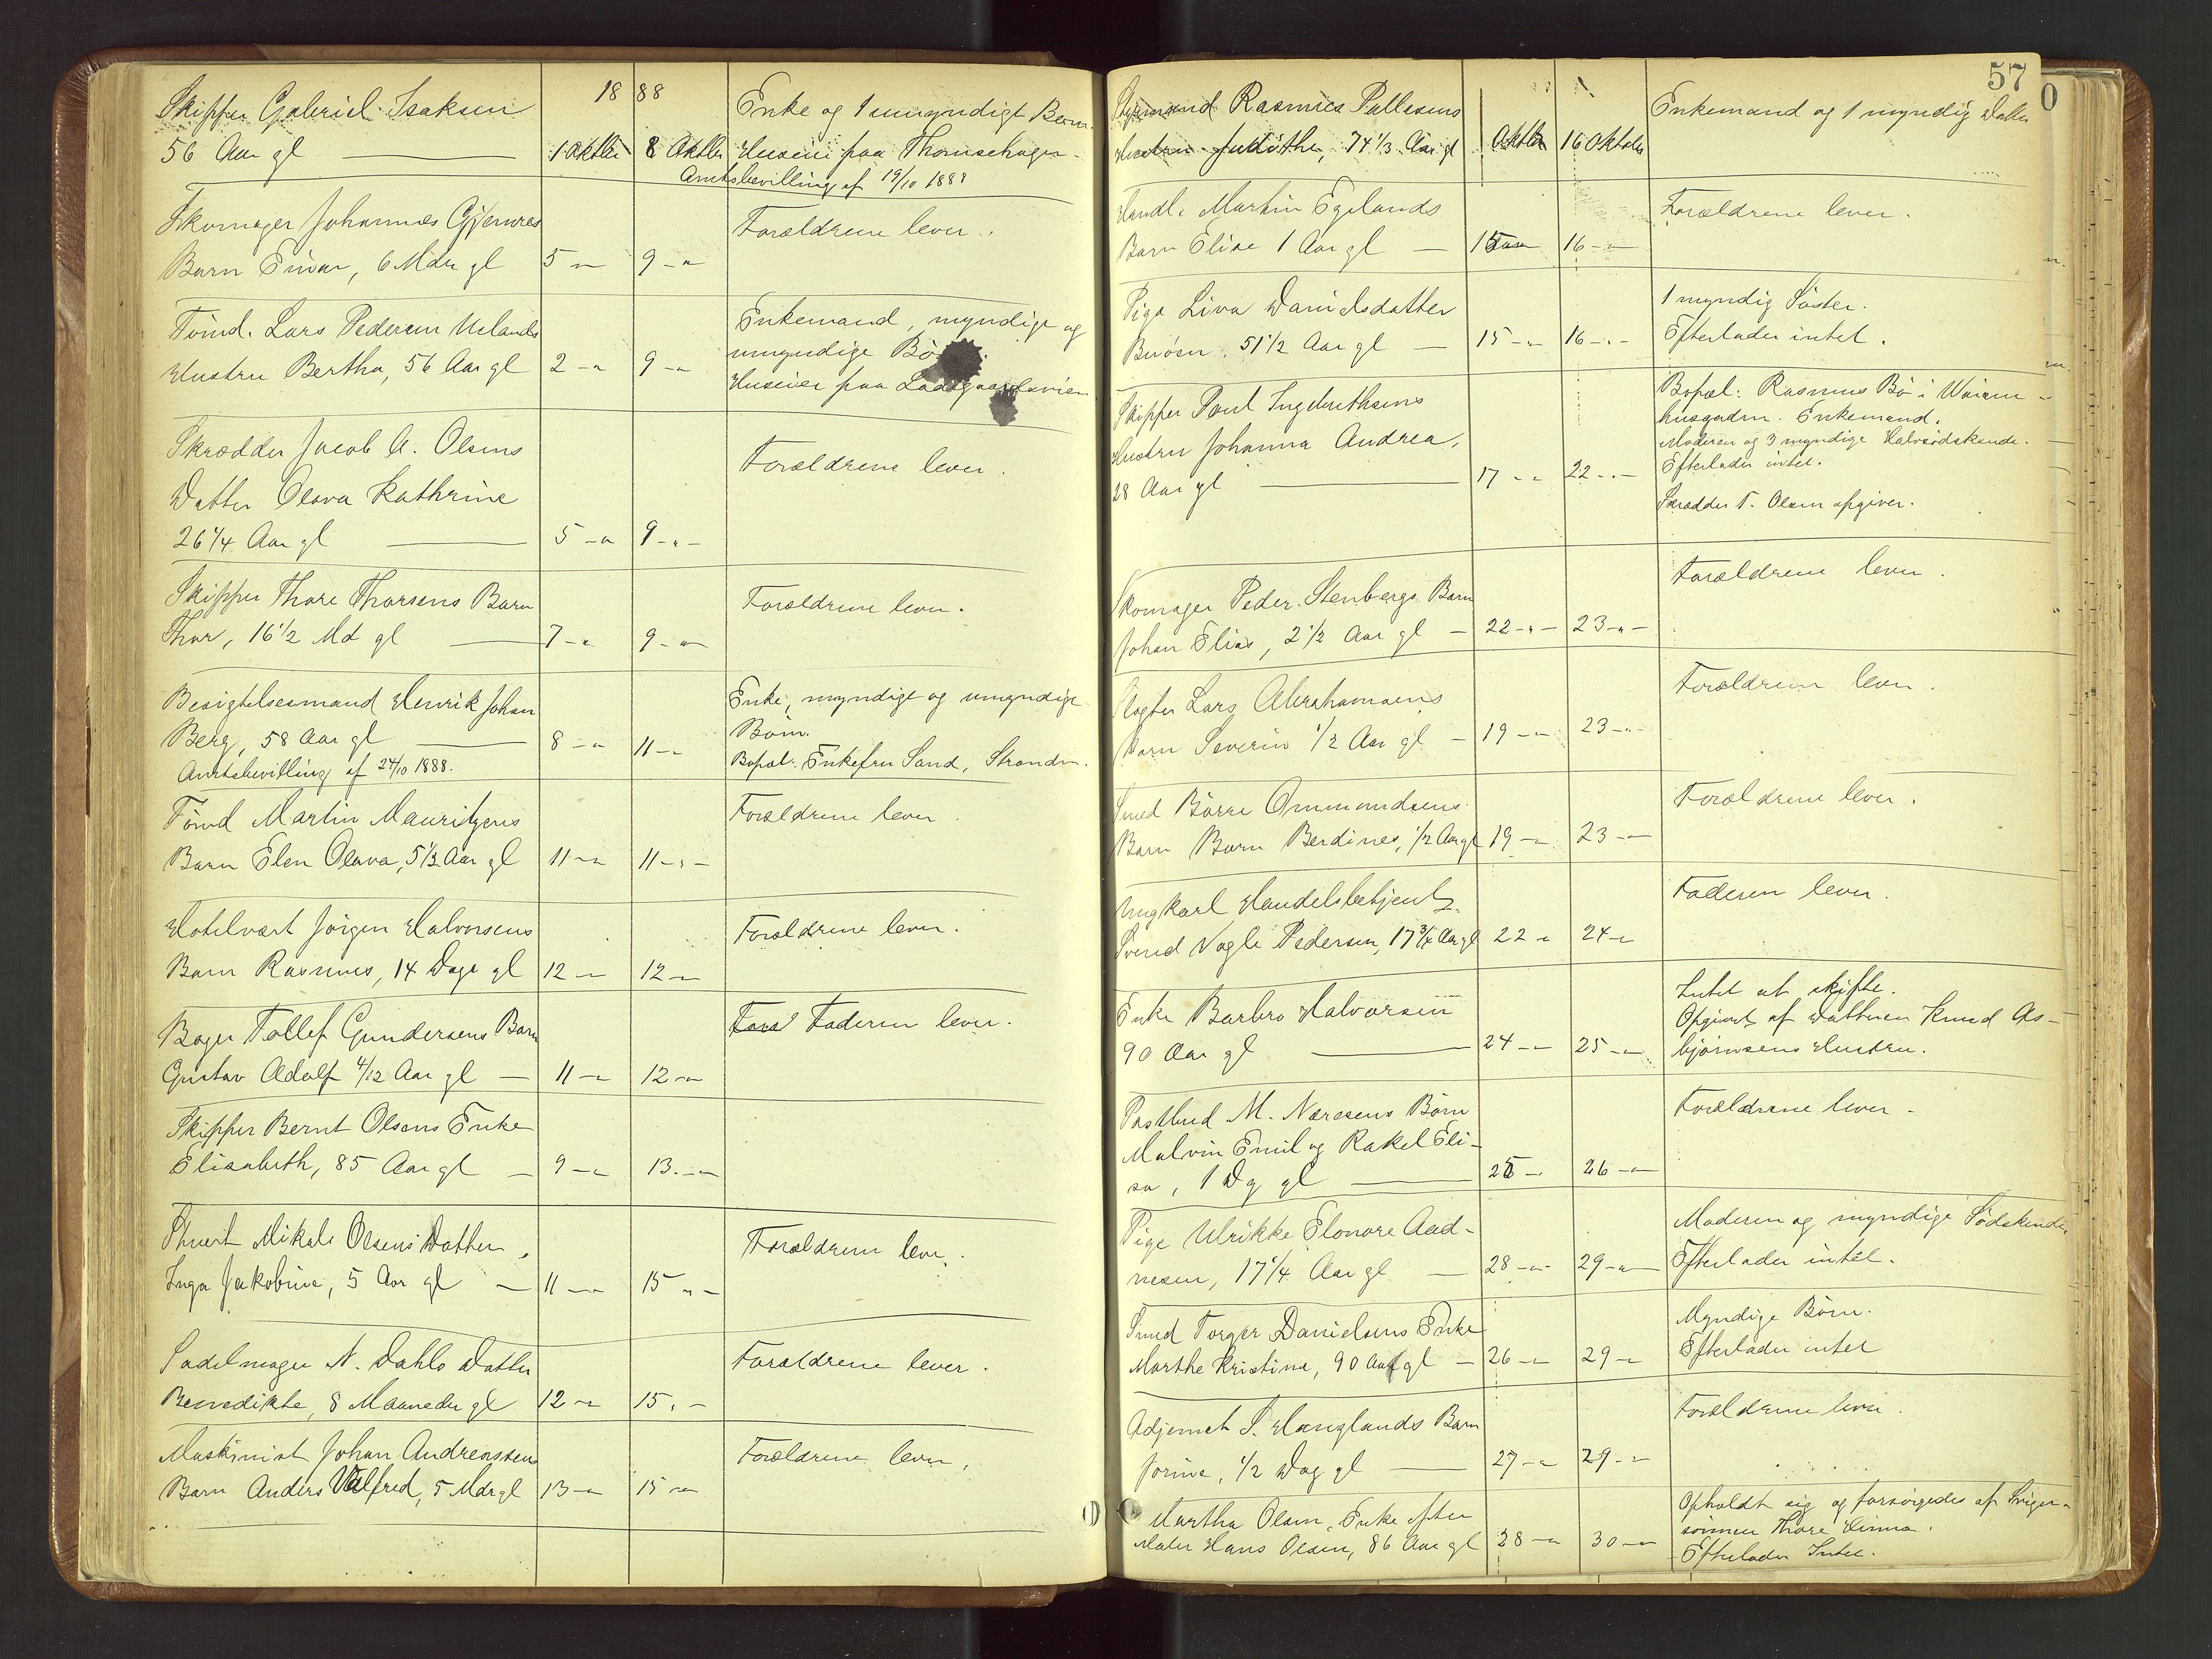 18 88
Skipper Gabriel Isaksen
56 Aar gl — 1 Oktbr 8 Oktbr
Enke og 1 umyndigt Barn.
Huseier paa
Amtsbevilling af 19/10 1888
Skomager Johannes
Barn Einar, 6 Mdr gl 5 — " 9 — "
Forældrene lever.
Tømd. Lars Pedersen Uelands
Hustru Bertha, 56 Aar gl 2 — " 9 — "
Enkemand, myndige og
umyndige
Huseier paa
Skrædder Jacob A. Olsens
Datter Olava Kathrine
26 1/4 Aar gl — 5 — " 9 — " —
Forældrene lever.
Skipper Thore Thorsens Barn
Thor, 16 1/2 Md gl — 7 — " 9 — "
Forældrene lever.
Besigtelsesmand Henrik Johan
Berg, 58 Aar gl — 8 — " 11 — "
Amtsbevilling af 24/10 1888.
Enke, myndige og umyndige
Børn.
Bopæl: Enkefru Sand, Stranden.
Tømd Martin Mauritzens
Barn Elen Olava, 5 1/3 Aar gl 11 — " 11 — " —
Forældrene lever.
Hotelvært Jørgen Halvorsens
Barn Rasmus, 14 Dage gl 12 — " 12 — "
Forældrene lever.
Bager Tollef Gundersens Barn
Gustav Adolf 4/12 Aar gl — 11 — " 12 — "
Faderen lever.
Skipper Bernt Olsens Enke
Elisabeth, 85 Aar gl — 9 — " 13. — "
Stuert Mikal Olsens Datter
Inga Jakobine, 5 Aar gl — 11 — " 15 " —
Forældrene lever.
Sadelmager N. Dahls Datter
Benedikte, 8 Maaneder gl 12 — " 15. —
Forældrene lever.
Maskinist Johan Andreassens
Barn Anders Valfred, 5 Mdr gl 13 — " 15 — "
Forældrene lever.
57
Styrmand Rasmus Pallesens
Hustru Judithe, 74 1/3 Aar gl Oktbr 16 Oktober
Enkemand og 1 myndig Datter
Handl. Martin Egelands
Barn Elise 1 Aar gl — 15 16 — "
Forældrene lever.
Pige Liva Danielsdatter
51 1/2 Aar gl — 15 — " 16 — " —
1 myndig Søster.
Efterlader intet.
Skipper Poul Ingebrethsens
Hustru Johanna Andrea,
28 Aar gl — 17 — " 22 — " —
Bopæl: Rasmus Bø i
husgaden. Enkemand.
Moderen og 3 myndige Halvsødskende.
Efterlader intet.
Skrædder T. Olsen opgiver.
Skomager Peder Stenbergs Barn
Johan Elias, 2 1/2 Aar gl — 22 — " — 23 — " —
Forældrene lever.
Slagter Lars Abrahamsens
Barn Severin 1/2 Aar gl — 19 — " 23 — " —
Forældrene lever.
Smed Børre Ommundsens
Barn Barn Berdines, 1/2 Aar gl 19 — " 23 — "
Forældrene lever.
Ungkarl Handelsbetjent
Svend Vagle Pedersen, 17 3/4 Aar gl 22 " 24 — "
Faderen lever.
Enke Barbro Halvorsen
90 Aar gl — 24 — " 25 — "
Intet at skifte.
Opgivet af Datteren Knud As-
bjørnsens Hustru.
Postbud M. Næsens Børn
Malvin Emil og Rakel Eli-
sa, 1 Dg gl — 25 — " 26 — "
Forældrene lever.
Pige Ulrikke Elonore Aad-
nesen, 17 1/4 Aar gl — 28 — " 29 — "
Moderen og myndige Sødskende.
Efterlader intet.
Smed Torger Danielsens Enke
Marthe Kristine, 90 Aar gl — 26 — " 29 — "
Myndige Børn.
Efterlader intet
Adjunct S. Hauglands Barn
Jorine, 1/2 Dag gl — 27 — " 29 — "
Forældrene lever.
Martha Olsen, Enke efter
Maler Hans Olsen, 86 Aar gl 28 — " 30 — "
Opholdt sig og forsørgedes af Sviger-
sønnen Thore Hinna.
Efterlader Intet.